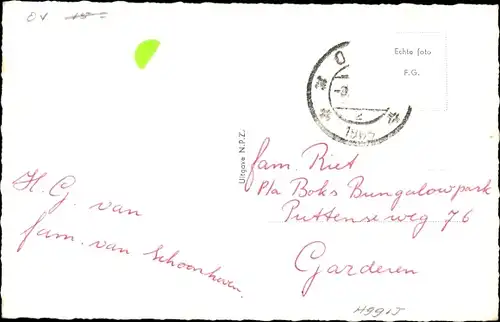 OV
Echte foto
F.G.
Uitgave N.P.Z.
fam. Riet
p/a Boks Bungalowpark
Puttenseweg 76
Garderen
H.G. van
fam. van Schoonhoven.
H991J